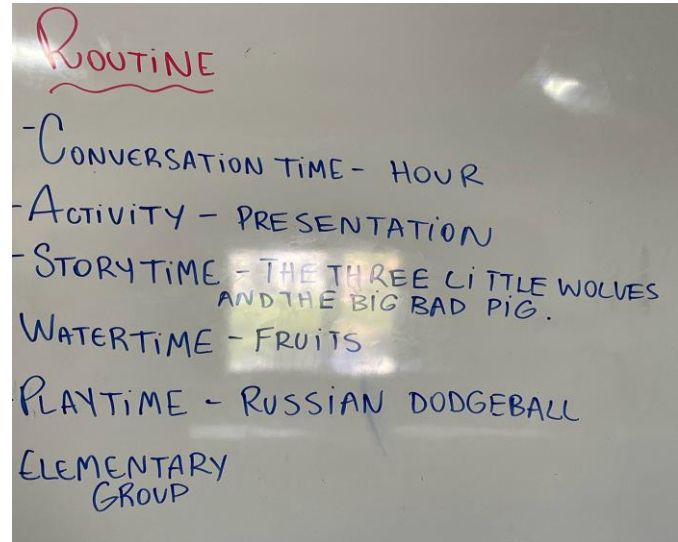 ROUTINE
-CONVERSATION TIME - HOUR
-ACTIVITY - PRESENTATION
-STORYTIME - THE THREE LITTLE WOLVES
AND THE BIG BAD PIG.
WATERTIME - FRUITS
-PLAYTIME - RUSSIAN DODGEBALL
ELEMENTARY
GROUP